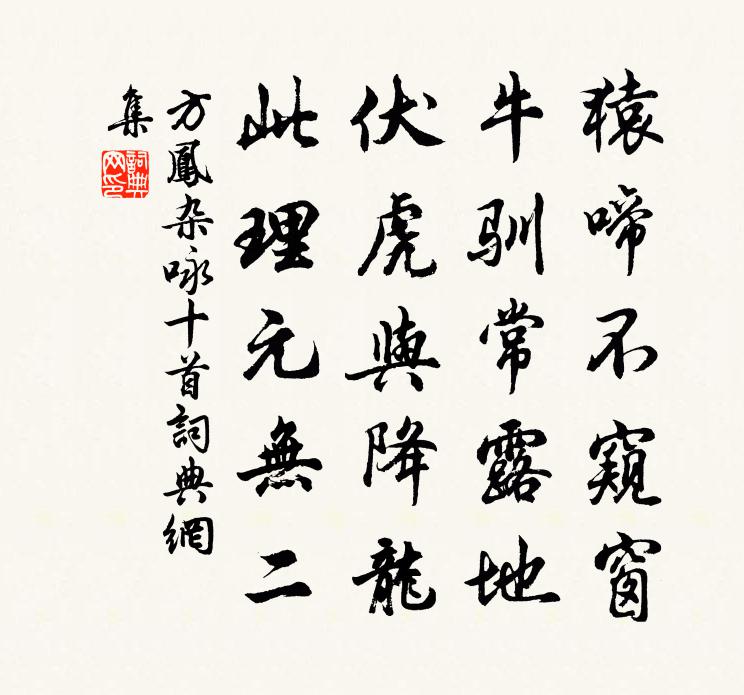 猿啼不窺窗
牛馴常露地
伏虎與降龍
此理元無二
方鳳杂咏十首詞典網
集
詞典网印